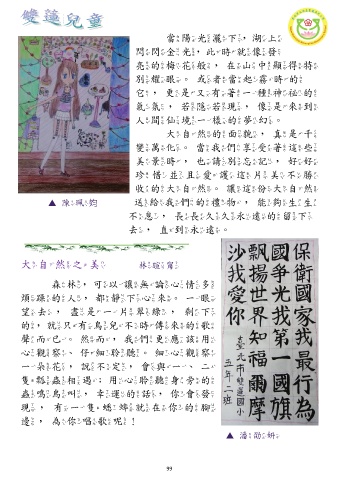 雙蓮兒童
當陽光灑下，湖上
閃閃金光，此時就像發
亮的梅花般，在山中顯得特
別耀眼。或者當起霧時的
它，更是又有著一種神祕的
氣氛，若隱若現，像是來到
人間仙境一樣的夢幻。
大自然的面貌，真是千
變萬化。當我們享受著這些
美景時，也請別忘記，好好
珍惜並且愛護這片美不勝
收的大自然。讓這份大自然
送給我們的禮物，能夠生生
不息，長長久久永遠的留下
去，直到永遠。
▲ 陳珮鈞
大自然之美
森林，可以讓無論心情多
煩躁的人，都靜下心來。一眼
望去，盡是一片翠綠，剩下
的，就只有鳥兒不時傳來的歌
聲而已。然而，我們更應該用
心觀察、仔細聆聽。細心觀察
一朵花，說不定，會與一、二
隻瓢蟲相遇；用心聆聽身旁的
蟲鳴鳥叫，幸運的話，你會發
現，有一隻蟋蟀就在你的腳
邊，為你唱歌呢！
保衛國家我最行為
國爭光我第一國旗
飄揚世界知福爾摩
沙我愛你
臺北市雙蓮國小
五年二班
99